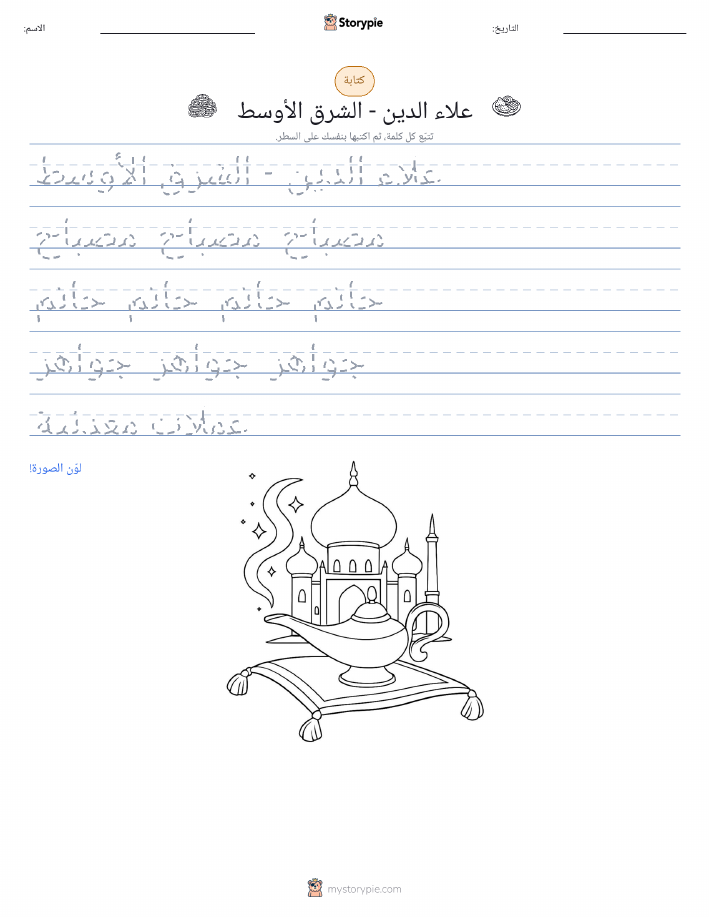 Storypie
الاسم:
التاريخ:
كتابة
علاء الدين - الشرق الأوسط
تتبّع كل كلمة، ثم اكتبها بنفسك على السطر.
علاء الدين - الشرق الأوسط
مصباح مصباح مصباح
خاتم خاتم خاتم خاتم
جواهر جواهر جواهر
عملات معدنية
لوّن الصورة!
mystorypie.com